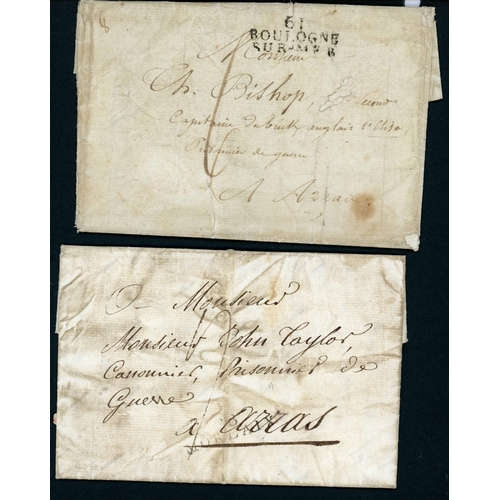 61
BOULOGNE
SUR-MER
Monsieur
Ch. Bishop, second
Capitaine du brick anglais l'Elisa,
Prisonnier de guerre
A Arras
A Monsieur
Monsieur John Taylor,
Canonnier, Prisonnier de
Guerre
à Arras